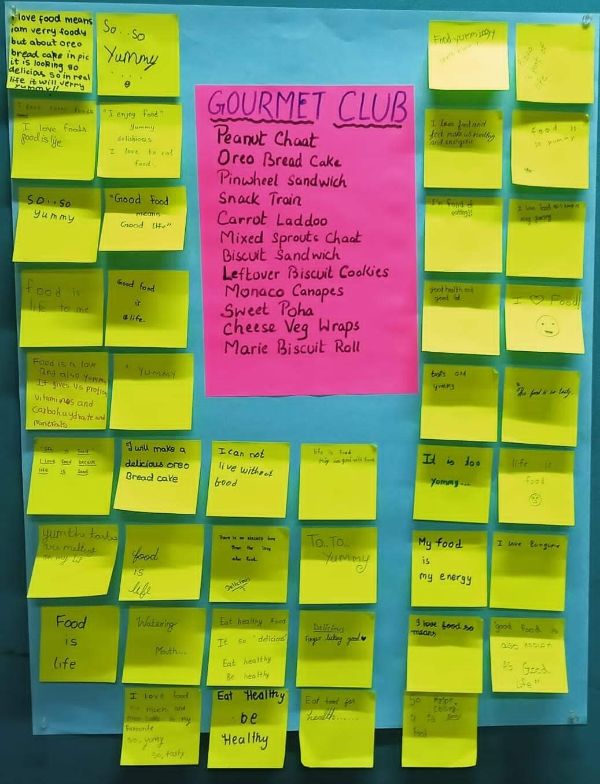 I love food means
iam verry foody
but about oreo
bread cake in pic
it is looking so
delicias so in real
life it will verry
yummy!!
So...so
Yummy
Food yummy
I love foods
food is life
"I enjoy food"
yummy
delishious
I love to eat
food.
GOURMET CLUB
Peanut Chaat
Oreo Bread Cake
Pinwheel Sandwich
Snack Train
Carrot Laddoo
Mixed Sprouts Chaat
Biscuit Sandwich
Leftover Biscuit Cookies
Monaco Canapes
Sweet Poha
Cheese Veg Wraps
Marie Biscuit Roll
I love food and
food make us healthy
and energetic
food is
so yummy
So...so
yummy
"Good food
means
Good life"
I'm fond of
eating!!
I love food
food is
life to me
Good food
is
a life.
good health and
good
I ♡ Food!
Food is a love
and also yummy
It gives us protein
vitamins and
carbohaydrate and
minerals
"Yummy
and
yummy
This food is so tasty.
life is food
I love food because
life is food
I will make a
delicious oreo
Bread cake
I can not
live without
food
life is food
It is too
yommy...
life is
food
yum
food
is
life
There is no sincere love
than the love
of food.
Delicious
To..To..
Yummy
My food
is
my energy
I love
Food
is
life
Watering
Mouth...
Eat healthy food
It so "delicious"
Eat healthy
Be healthy
Delicious
finger licking good♥
I love food so
means
good food is
Good
life"
I love food
so much and
favourite
so, yumy
so, tasty
Eat Healthy
be
Healthy
Eat food for
health......
so
it is
food